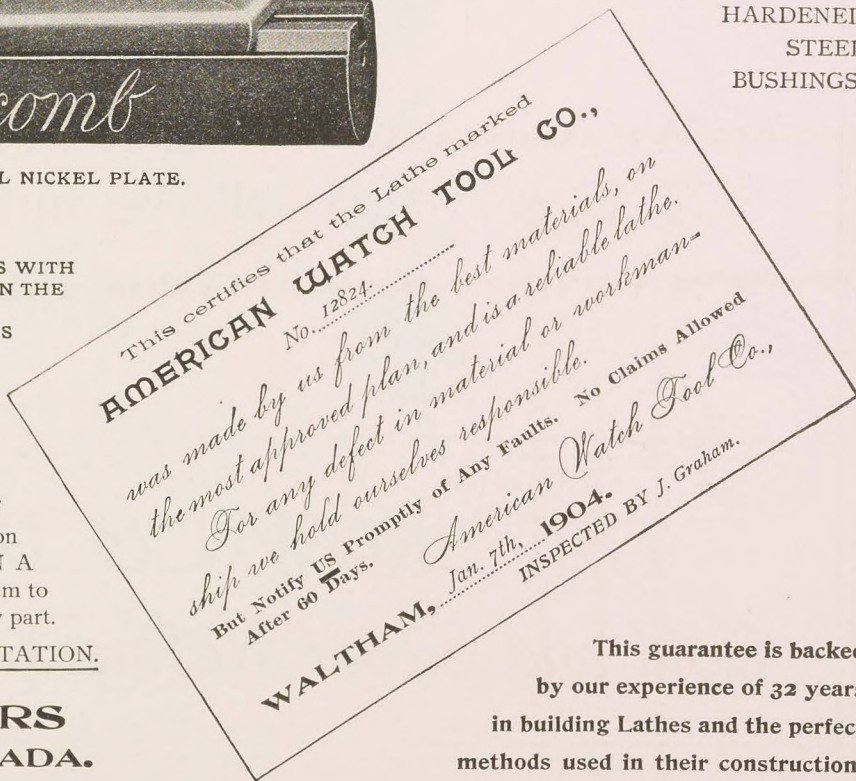 HARDENED
STEEL
BUSHINGS
comb
L NICKEL PLATE.
S WITH
N THE
S
This certifies that the Lathe marked
AMERICAN WATCH TOOL CO.,
No. 12824.
was made by us from the best materials, on
the most approved plan, and is a reliable lathe.
For any defect in material or workman=
ship we hold ourselves responsible.
But Notify US Promptly of Any Faults. No Claims Allowed
After 60 Days.
American Watch Tool Co.,
WALTHAM, Jan. 7th, 1904.
INSPECTED BY J. Graham.
on
N A
m to
part.
TATION.
RS
ADA.
This guarantee is backed
by our experience of 32 years
in building Lathes and the perfec
methods used in their construction